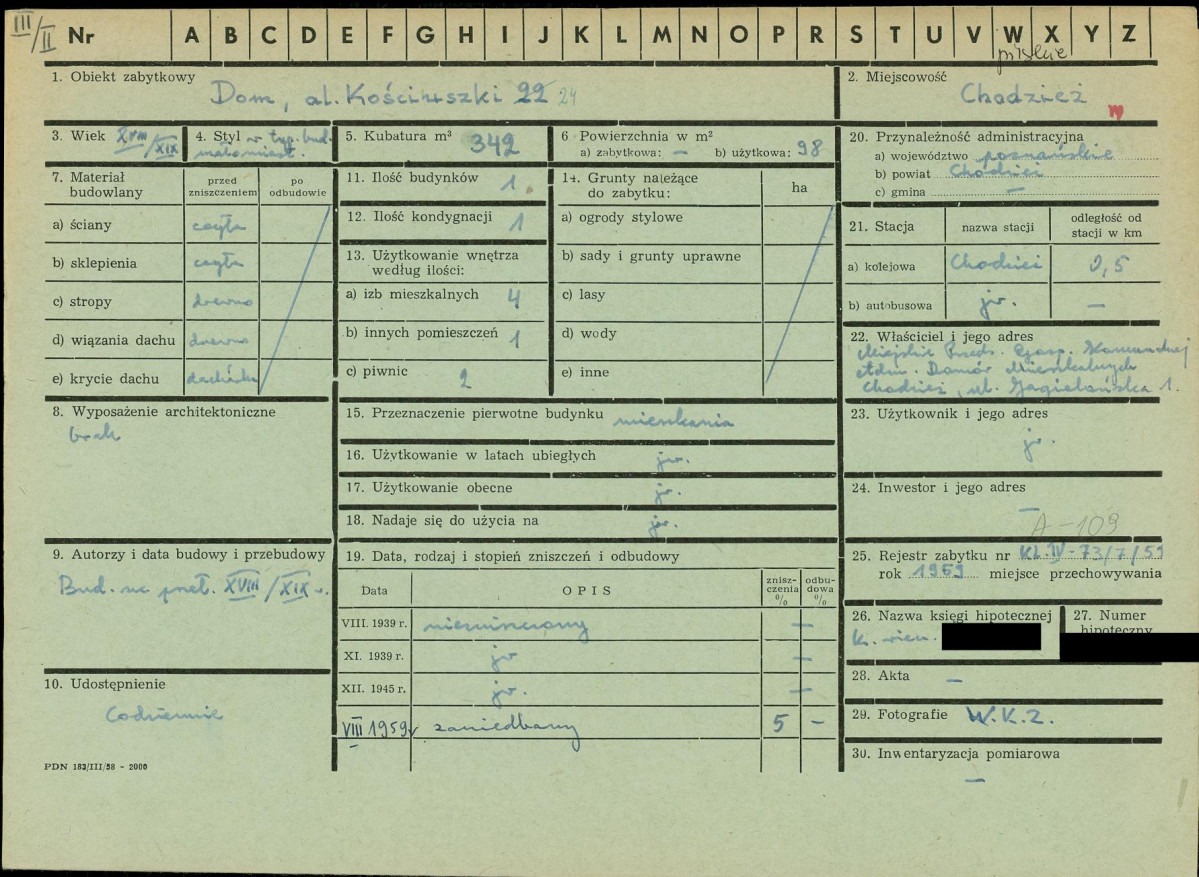 III/II Nr A B C D E F G H I J K L M N O P R S T U V W X Y Z
pilskie
1. Obiekt zabytkowy
Dom, al. Kościuszki 22 24
2. Miejscowość
Chodzież
3. Wiek XVIII/XIX
4. Styl w typ. bud. małomiast.
5. Kubatura m³ 342
6 Powierzchnia w m²
a) zabytkowa: — b) użytkowa: 98
7. Materiał budowlany
przed zniszczeniem
po odbudowie
a) ściany cegła
b) sklepienia cegła
c) stropy drewno
d) wiązania dachu drewno
e) krycie dachu dachówka
8. Wyposażenie architektoniczne
brak
9. Autorzy i data budowy i przebudowy
Bud. na przeł. XVIII/XIX w.
10. Udostępnienie
Codziennie
PDN 183/III/58 - 2000
11. Ilość budynków 1
12. Ilość kondygnacji 1
13. Użytkowanie wnętrza według ilości:
a) izb mieszkalnych 4
b) innych pomieszczeń 1
c) piwnic 2
14. Grunty należące do zabytku:
ha
a) ogrody stylowe
b) sady i grunty uprawne
c) lasy
d) wody
e) inne
15. Przeznaczenie pierwotne budynku mieszkania
16. Użytkowanie w latach ubiegłych jw.
17. Użytkowanie obecne jw.
18. Nadaje się do użycia na jw.
19. Data, rodzaj i stopień zniszczeń i odbudowy
Data
OPIS
zniszczenia %
odbudowa %
VIII. 1939 r. niezniszczony —
XI. 1939 r. jw —
XII. 1945 r. jw. —
VIII 1959 r zaniedbany 5 —
20. Przynależność administracyjna
a) województwo poznańskie
b) powiat Chodzież
c) gmina —
21. Stacja
nazwa stacji
odległość od stacji w km
a) kolejowa Chodzież 0,5
b) autobusowa jw. —
22. Właściciel i jego adres
Miejskie Przeds. Gosp. Komunalnej
Adm. Domów Mieszkalnych
Chodzież, ul. Jagiellońska 1.
23. Użytkownik i jego adres
jw.
24. Inwestor i jego adres
—
A-109
25. Rejestr zabytku nr KL.IV-73/7/59
rok 1959 miejsce przechowywania
26. Nazwa księgi hipotecznej
27. Numer hipoteczny
28. Akta —
29. Fotografie W.K.Z.
30. Inwentaryzacja pomiarowa
—